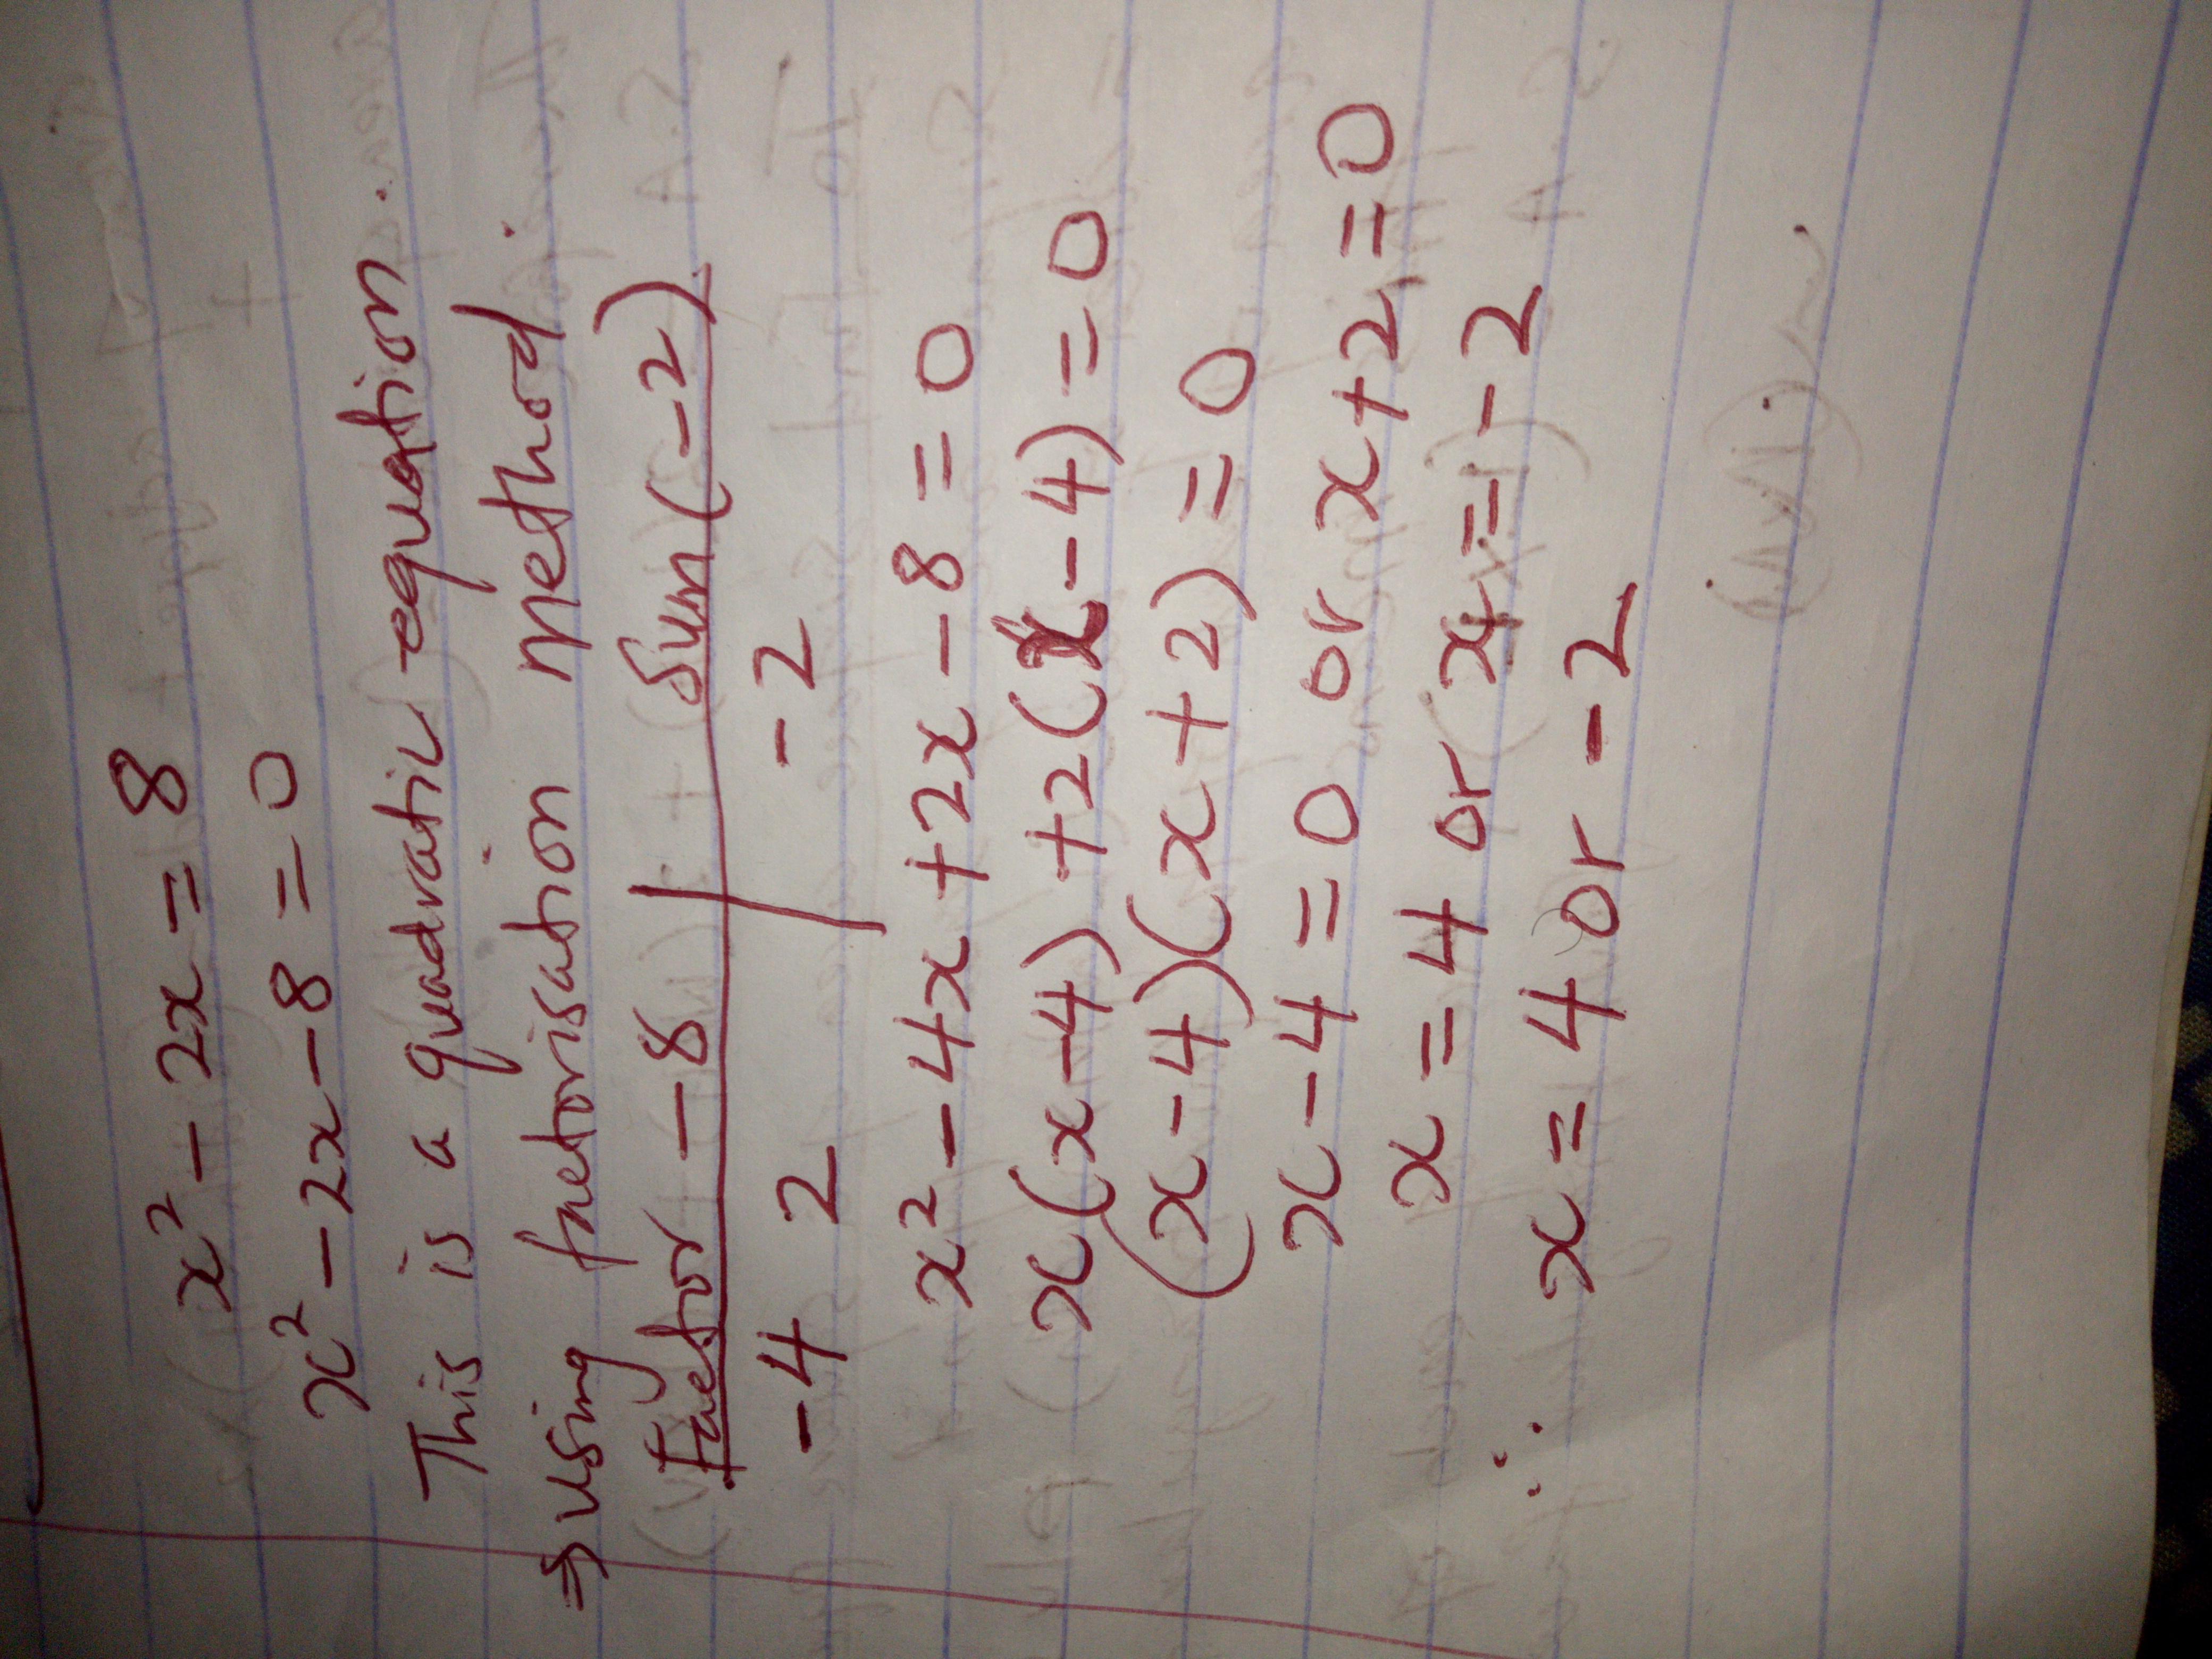 x² - 2x = 8
x² - 2x - 8 = 0
This is a quadratic equation.
⇒ using factorisation method.
Factor - 8 | Sum (-2)
-4 2 | -2
x² - 4x + 2x - 8 = 0
x(x-4) + 2(x-4) = 0
(x-4)(x+2) = 0
x - 4 = 0 or x + 2 = 0
x = 4 or x = -2
∴ x = 4 or -2